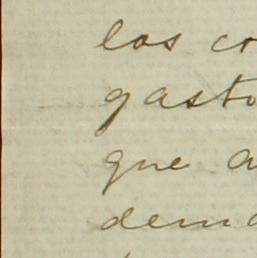 los co
gasto
que a
dema